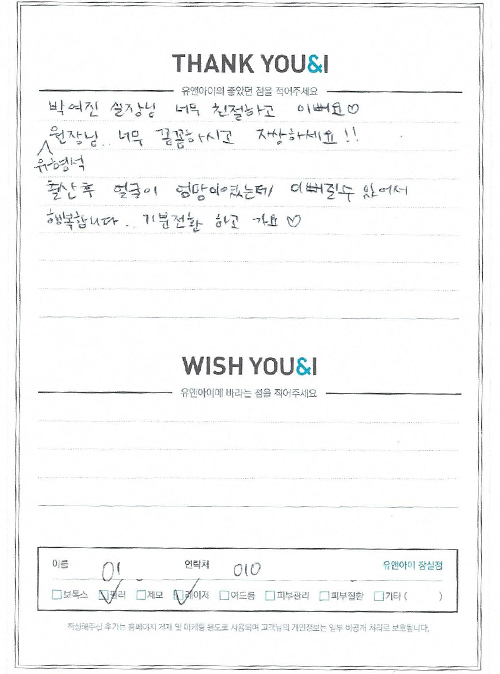 THANK YOU&I
유앤아이의 좋았던 점을 적어주세요
박여진 실장님 너무 친절하고 이뻐요♡
원장님.. 너무 꼼꼼하시고 자상하세요!!
유형석
출산후 얼굴이 엉망이였는데 이뻐질수 있어서
행복합니다.. 기분전환 하고 가요♡
WISH YOU&I
유앤아이에 바라는 점을 적어주세요
이름 이 연락처 010 유앤아이 잠실점
보톡스 필러 제모 레이저 여드름 피부관리 피부질환 기타 ( )
작성해주신 후기는 홈페이지 게재 및 마케팅 용도로 사용되며 고객님의 개인정보는 일부 비공개 처리로 보호됩니다.